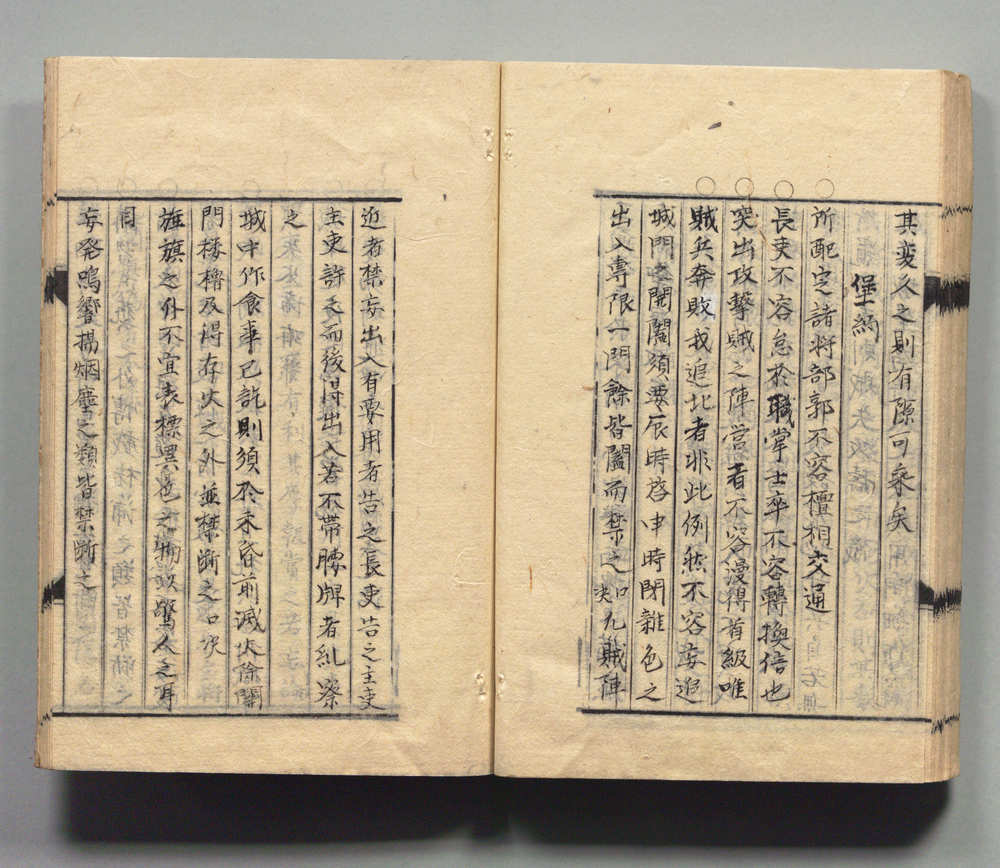 其変人之則有隙可乗矣
堡約
所配定諸将部郭不容檀相交通
長吏不容怠於職掌士卒不容轉換信也
突出攻撃賊之陣営者不容漫得首級唯
賊兵奔敗我追北者非此例然不容妄追
城門之開闔須要辰時啓申時閉雑色之
出入専限一門餘皆闔而禁之口決凡賊陣
近者禁妄出入有要用者告之長吏告之主吏
主吏許之而後得出入若不帯腰牌者糺察
之
城中作食事已訖則須於未昏前滅火除關
門楼櫓及得存火之外並禁断之口決
旌旗之外不宜表標異色之物以驚人之耳
目
妄発鳴響揚烟塵之類皆禁断之